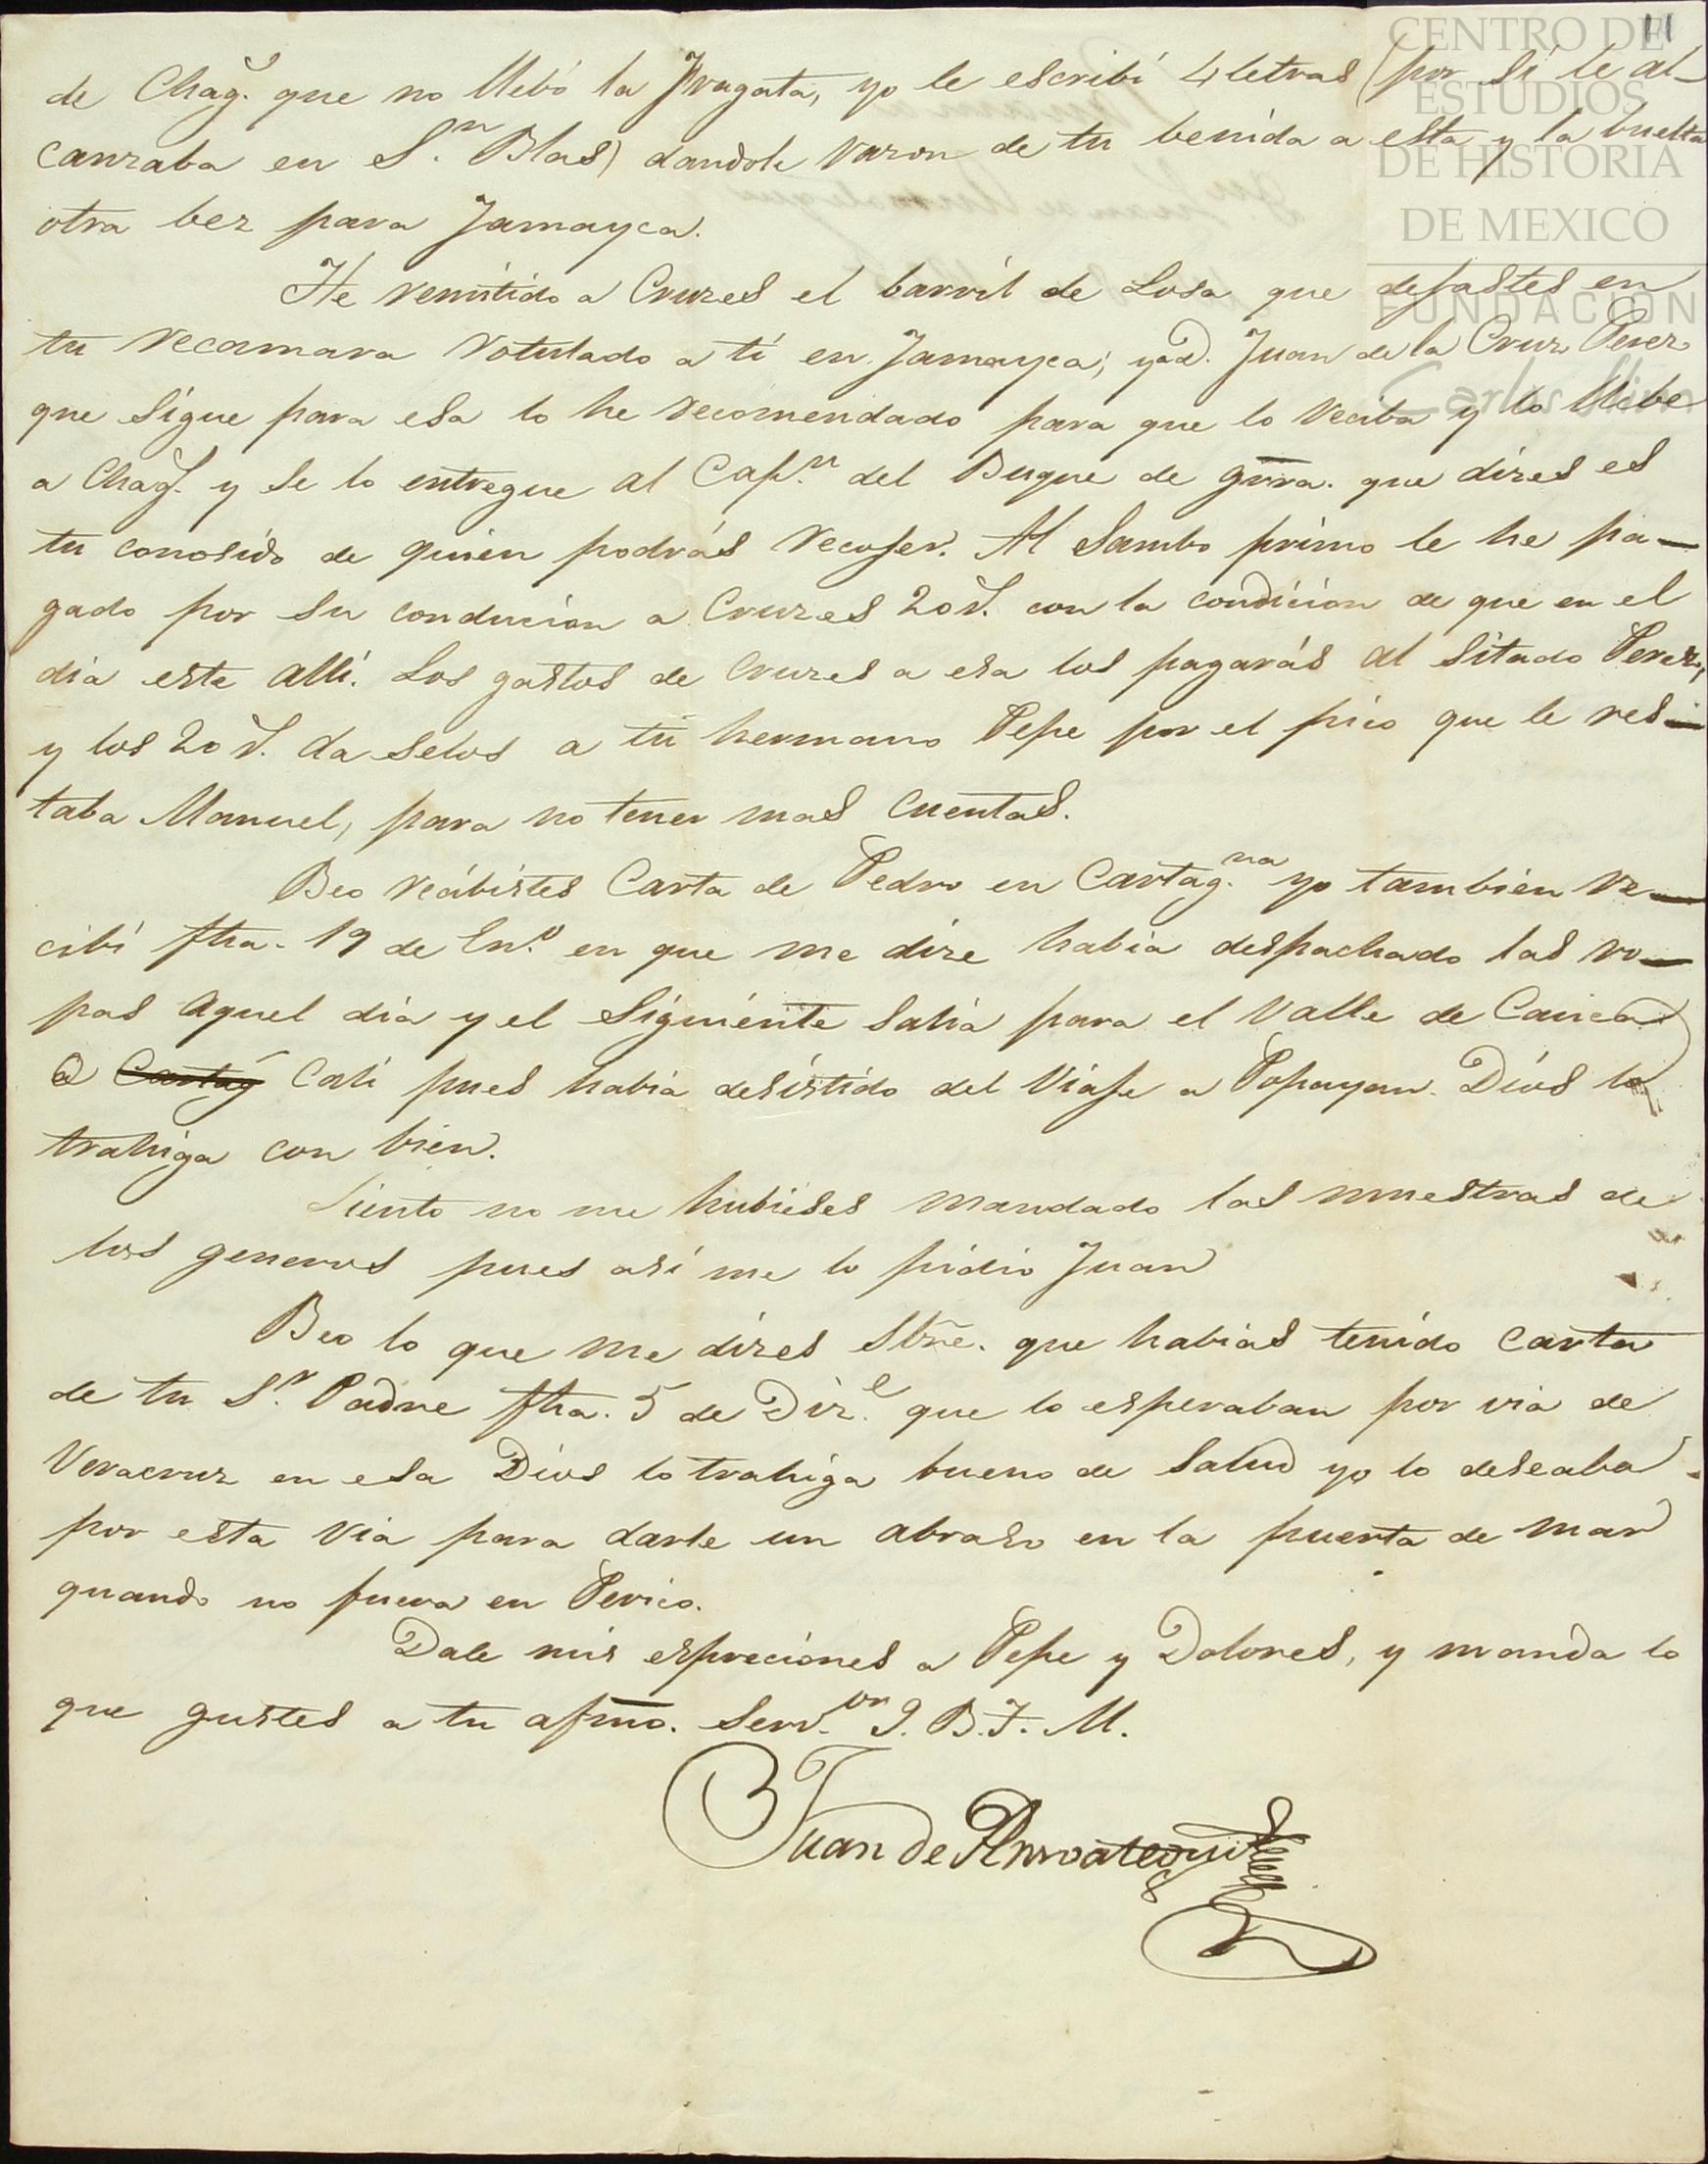 11
CENTRO DE
ESTUDIOS
DE HISTORIA
DE MEXICO
FUNDACION
Carlos Slim
de Chag.s que no llebó la Fragata, yo le escribí 4 letras (por si le al-
canzaba en S.n Blas) dandole razon de tu benida a esta y la buelta
otra bez para Jamayca.
He remitido a Cruzes el barril de Losa que dejastes en
tu recamara rotulado a ti en Jamayca; y a D. Juan de la Cruz Perez
que sigue para esa lo he recomendado para que lo reciba y lo llebe
a Chag.s y se lo entregue al Cap.n del Buque de grra. que dizes es
tu conosido de quien podrás recojer. Al Sambo primo le he pa-
gado por su conducion a Cruzes 20 r.s con la condicion de que en el
dia este allí. Los gastos de Cruzes a esa los pagarás al sitado Perez,
y los 20 r.s da selos a tu hermano Pepe por el pico que le res-
taba Manuel, para no tener mas cuentas.
Beo recibistes Carta de Pedro en Cartag.na yo tambien re-
cibí fha. 19 de En.o en que me dize habia despachado las ro-
pas aquel dia y el siguiente salia para el Valle de Cauca
a Cartag Cali pues habia desistido del Viaje a Popayan. Dios lo
trahiga con bien.
Siento no me hubieses mandado las muestras de
los generos pues asi me lo pidio Juan
Beo lo que me dizes sbre. que habias tenido carta
de tu S.r Padre fha. 5 de Diz.e que lo esperaban por via de
Veracruz en esa Dios lo trahiga bueno de salud yo lo deseaba
por esta via para darle un abraso en la puerta de mar
quando no fuera en Perico.
Dale mis espreciones a Pepe y Dolores, y manda lo
que gustes a tu afmo. Serv.or Q. B. T. M.
Juan de Arroategui